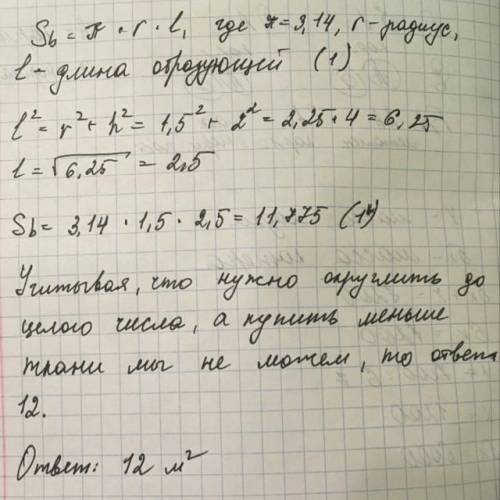 Sb = π · r · l, где π = 3,14, r – радиус,
l – длина образующей (1)
l² = r² + h² = 1,5² + 2² = 2,25 + 4 = 6,25
l = √6,25 = 2,5
Sb = 3,14 · 1,5 · 2,5 = 11,775 (1)
Учитывая, что нужно округлить до
целого числа, а купить меньше
ткани мы не можем, то ответ
12.
Ответ: 12 м²